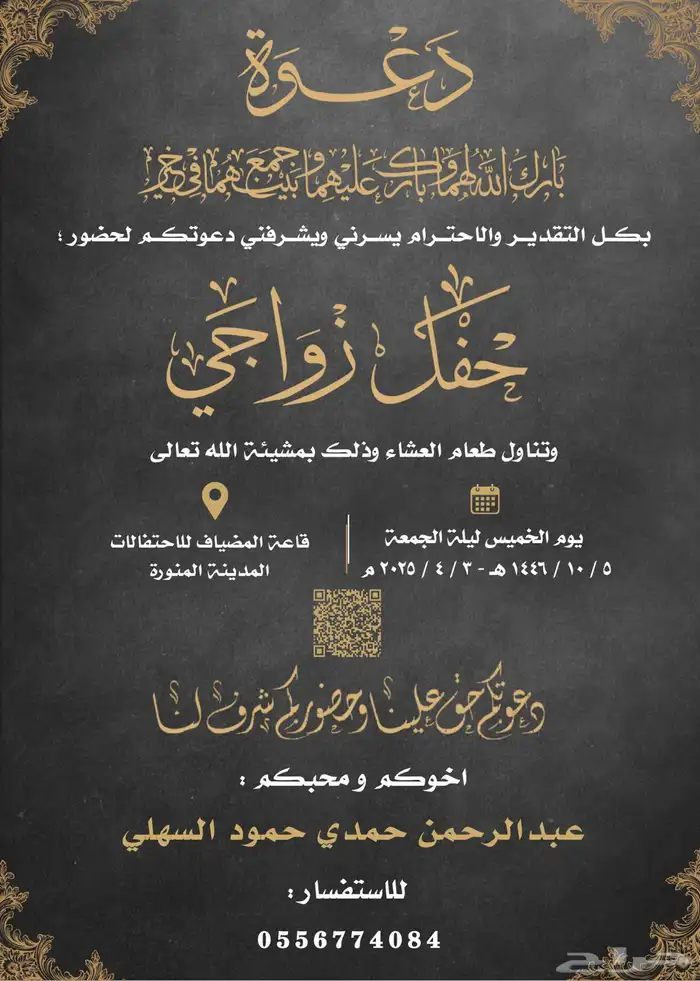 دَعْوَة
بَارَكَ اللهُ لَهُمَا وَبَارَكَ عَلَيْهِمَا وَجَمَعَ بَيْنَهُمَا فِي خَيْرٍ
بكل التقدير والاحترام يسرني ويشرفني دعوتكم لحضور؛
حَفْل زَوَاجَي
وتناول طعام العشاء وذلك بمشيئة الله تعالى
يوم الخميس ليلة الجمعة
٥ / ١٠ / ١٤٤٦ هـ - ٣ / ٤ / ٢٠٢٥ م
قاعة المضياف للاحتفالات
المدينة المنورة
دعوتكم حق علينا وحضوركم شرف لنا
اخوكم و محبكم :
عبدالرحمن حمدي حمود السهلي
للاستفسار:
0556774084
حراج